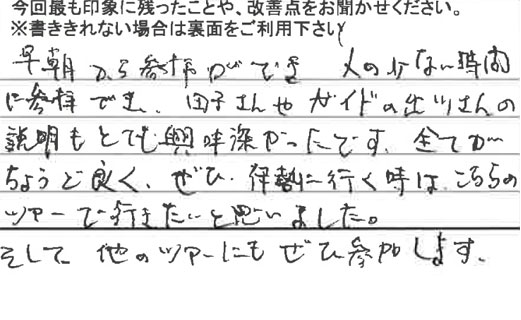 今回最も印象に残ったことや、改善点をお聞かせください。
※書ききれない場合は裏面をご利用下さい
早朝から参拝ができ 人の少ない時間
に参拝でき、田子さんやガイドの出ツさんの
説明もとても興味深かったです。全てが
ちょうど良く、ぜひ伊勢に行く時は、こちらの
ツアーで行きたいと思いました。
そして 他のツアーにもぜひ参加します。